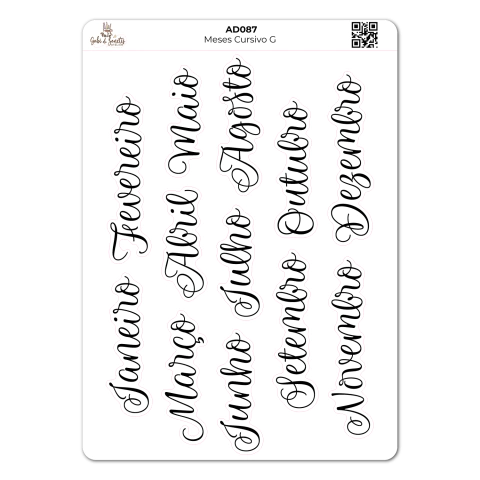 Gabi & Sweets
AD087
Meses Cursivo G
Janeiro
Fevereiro
Março
Abril
Maio
Junho
Julho
Agosto
Setembro
Outubro
Novembro
Dezembro